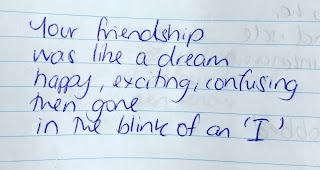 Your friendship
was like a dream
happy, exciting, confusing
then gone
in the blink of an 'I'